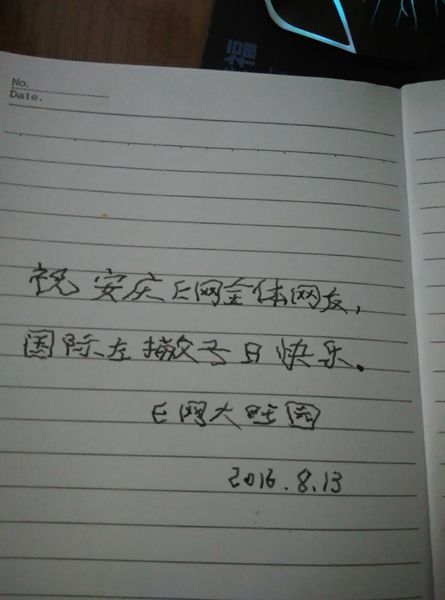 No.
Date.
祝安庆E网全体网友,
国际左撇子日快乐。
E网大旺园
2016.8.13